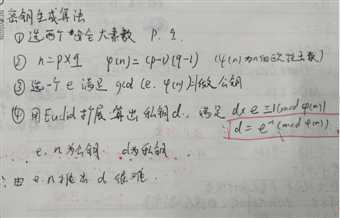 密钥生成算法
① 选两个安全大素数 p. q.
② n = p×q φ(n) = (p-1)(q-1) (φ(n)为n的欧拉函数)
③ 选一个 e 满足 gcd(e, φ(n))=1 做公钥
④ 用Euclid扩展算出私钥d, 满足 d×e≡1(mod φ(n))
d = e⁻¹(mod φ(n))
e, n 为公钥. d为私钥
由 e. n推出 d 很难.